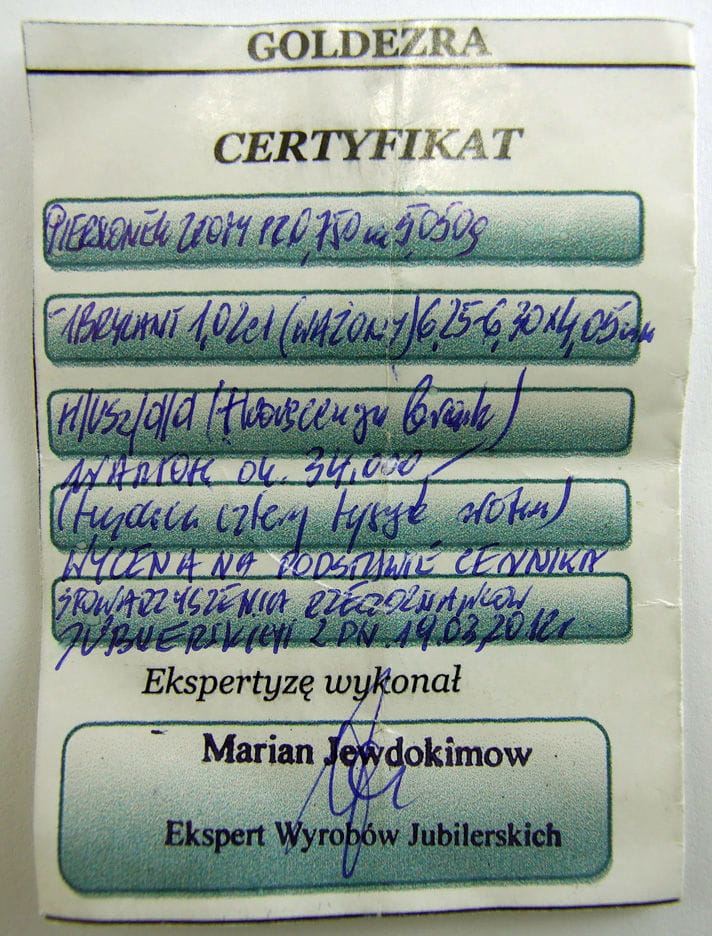 GOLDEZRA
CERTYFIKAT
PIERŚCIONEK ZŁOTY PR 0,750 m 5,050g
-1 BRYLANT 1,02ct (WAŻONY) 6,25-6,30x4,05mm
H/VS2/d/d (fluorescencja brak)
WARTOŚĆ ok. 34.000
(trzydzieści cztery tysiące złotych)
WYCENA NA PODSTAWIE CENNIKA
STOWARZYSZENIA RZECZOZNAWCÓW
JUBILERSKICH Z DN. 19.03.2012r.
Ekspertyzę wykonał
Marian Jewdokimow
Ekspert Wyrobów Jubilerskich